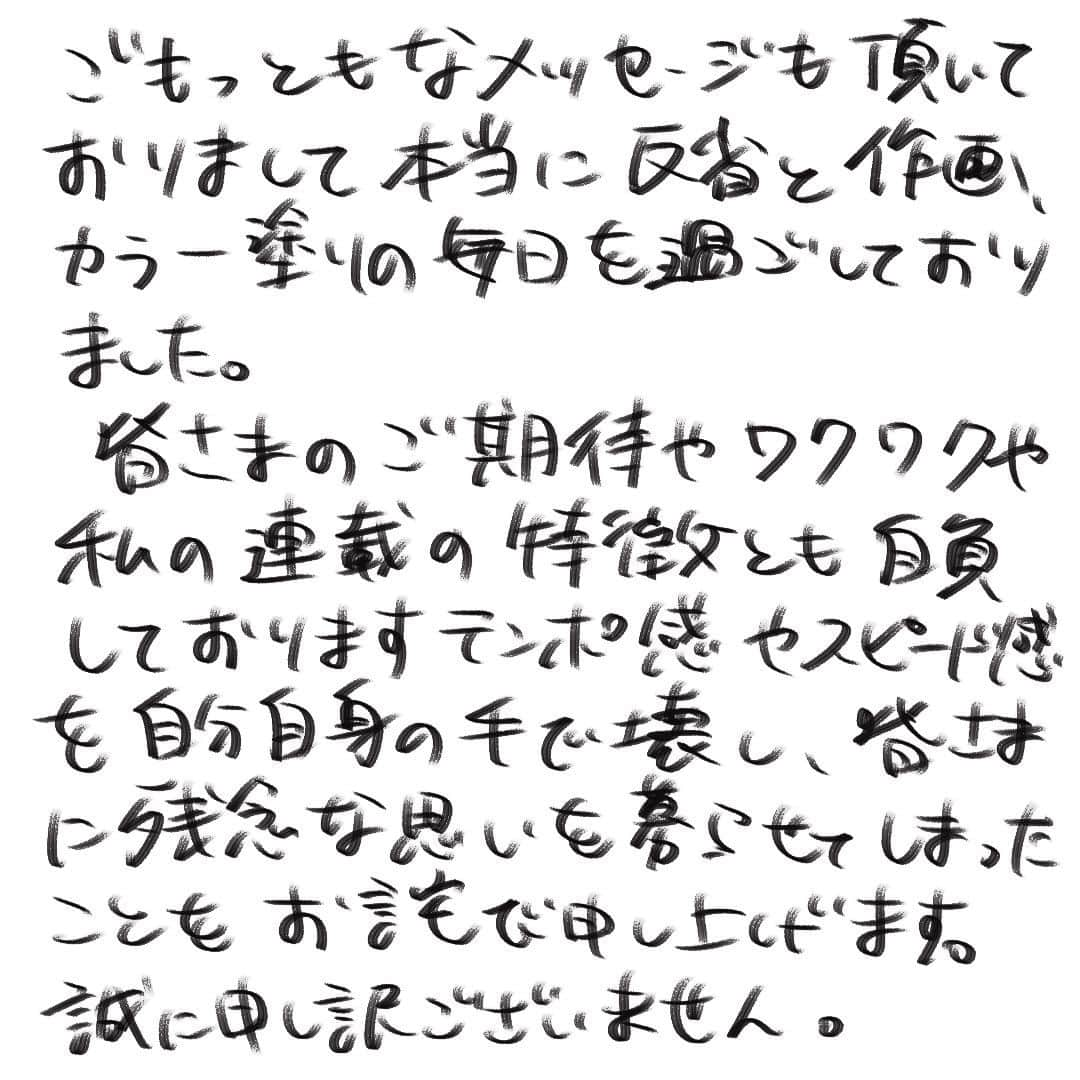 ごもっともなメッセージも頂いて
おりまして本当に反省と作画、
カラー塗りの毎日を過ごしており
ました。
皆さまのご期待やワクワクや
私の連載の特徴とも自負
しておりますテンポ感やスピード感
を自分自身の手で壊し、皆さま
に残念な思いを募らせてしまった
ことをお詫び申し上げます。
誠に申し訳ございません。